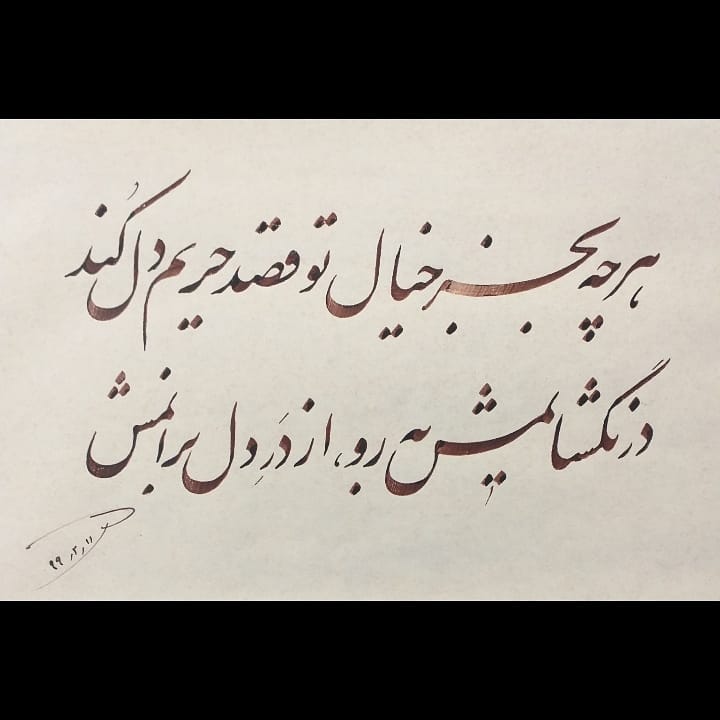 هرچه بجز خیال تو قصد حریم دل کُند
در نگشایمش به رو، از دَرِ دل برانمش
۹۹٫۳٫۱۱